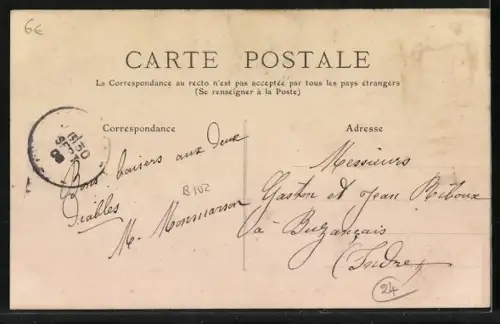 6€
CARTE POSTALE
La Correspondance au recto n'est pas acceptée par tous les pays étrangers
(Se renseigner à la Poste)
Correspondance
Adresse
Bons baisers aux deux
Diables
M. Monmarson
B102
Messieurs
Gaston et Jean Riboux
à Buzançais
(Indre)
24